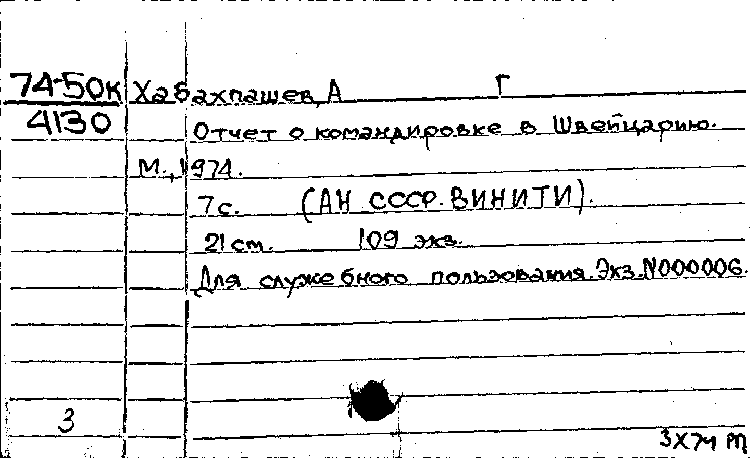 74-50К Хабахпашев, А Г
4130 Отчет о командировке в Швейцарию.
М., 1974.
7 с. (АН СССР. ВИНИТИ).
21 см. 109 экз.
Для служебного пользования. Экз. N000006.
3
3X74